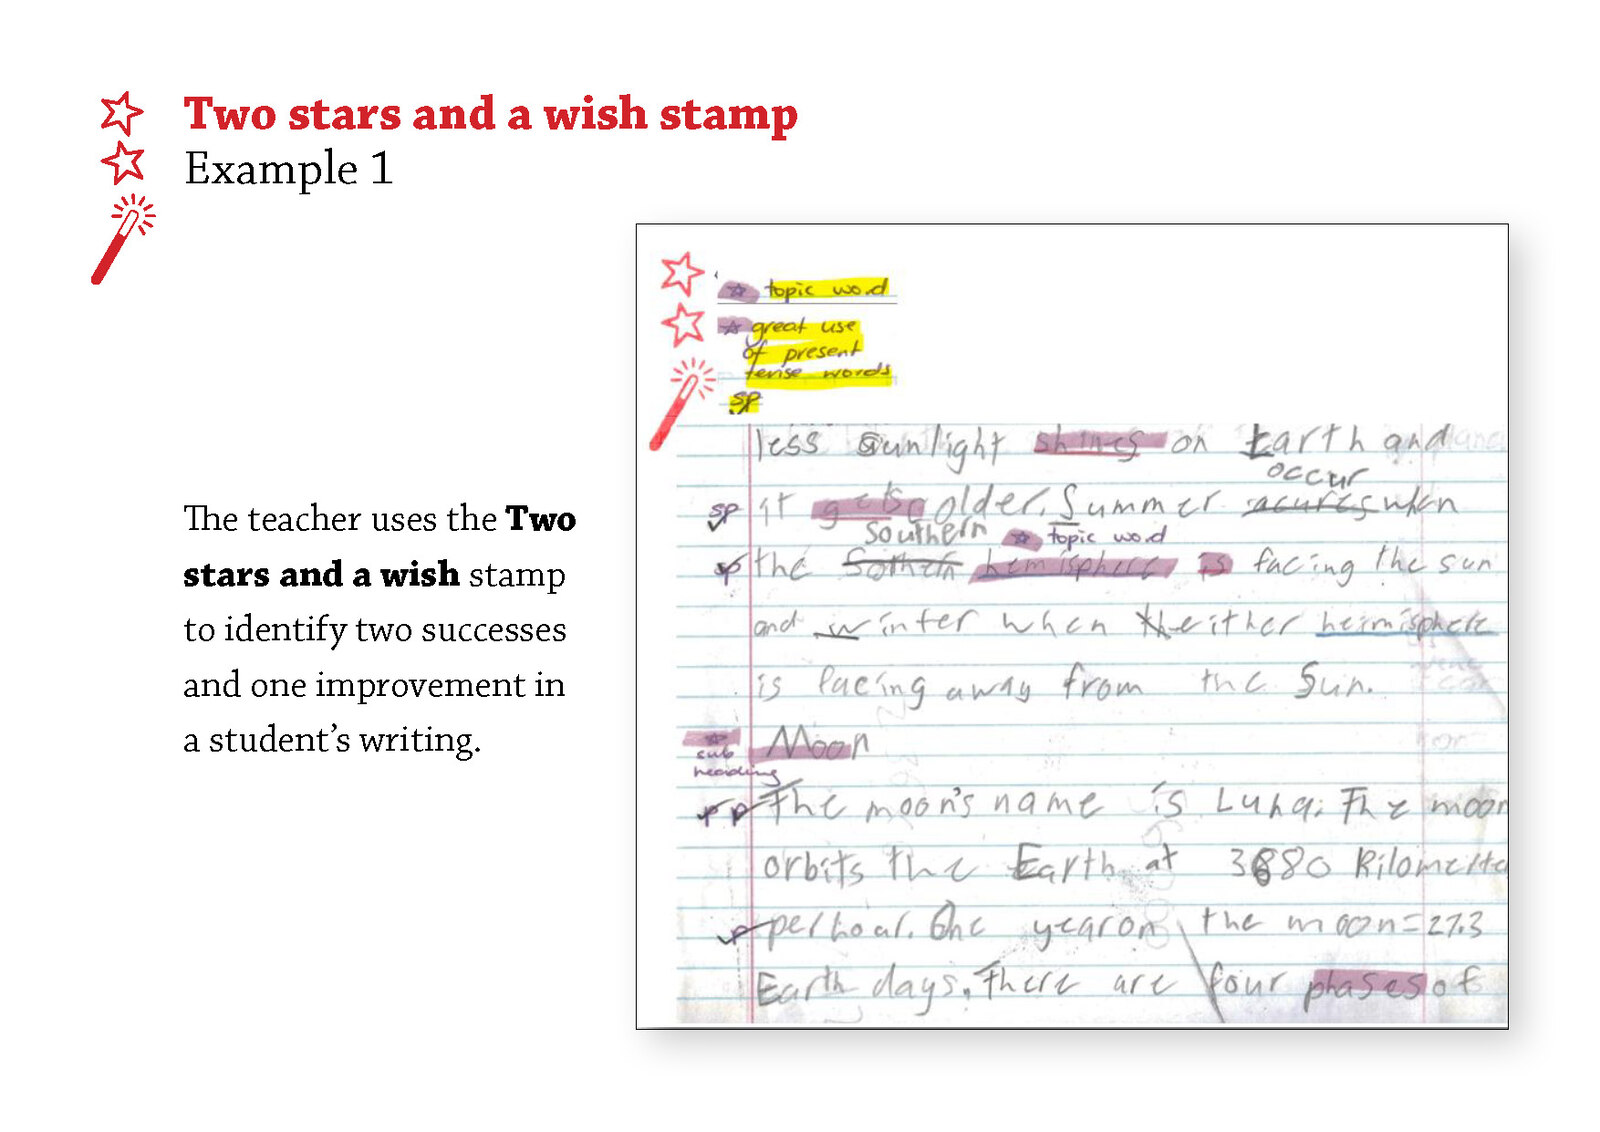 Two stars and a wish stamp
Example 1
The teacher uses the Two
stars and a wish stamp
to identify two successes
and one improvement in
a student's writing.
topic word
great use
of present
tense words
sp
less sunlight shines on Earth and
occur
sp it gets colder. Summer when
Southern topic word
sp the Sothern hemisphere is facing the sun
and winter when the either heimisphere
is facing away from the Sun.
sub
heading
Moon
The moon's name is Luna. The moon
orbits the Earth at 3680 Kilometre
per hour. One year on the moon=27.3
Earth days. There are four phases of